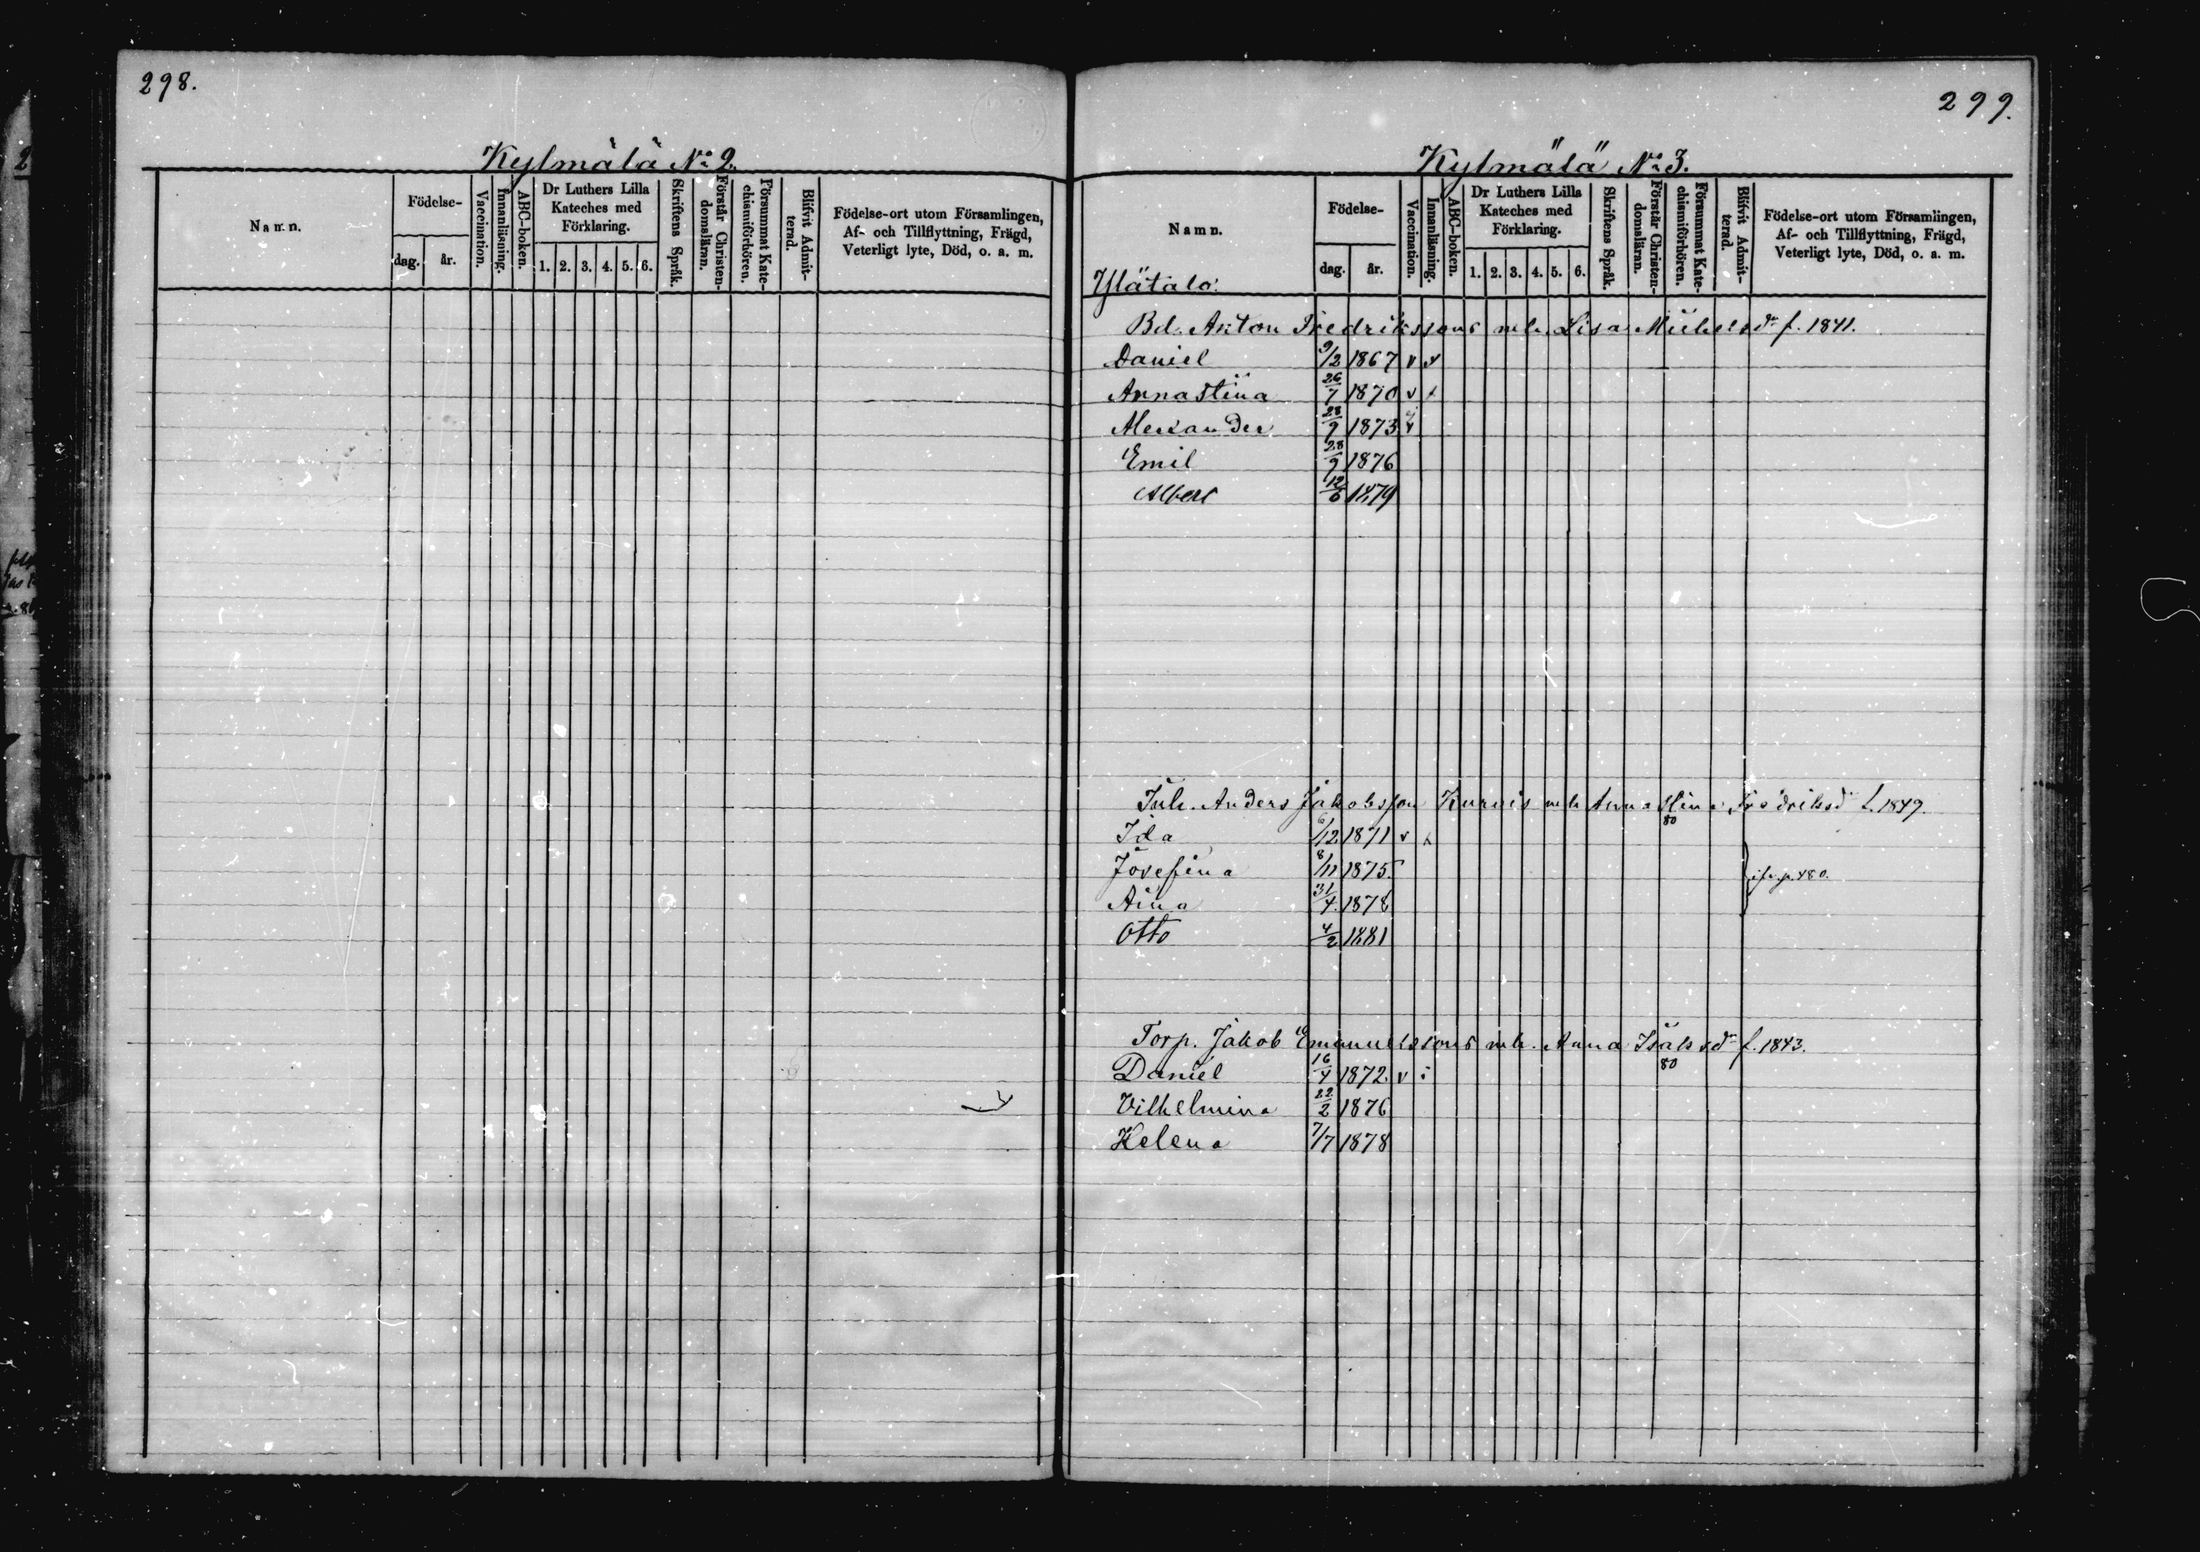 298.
Kylmälä No 2.
Namn.
Födelse-
dag.
år.
Vaccination.
Innanläsning.
ABC-boken.
Dr Luthers Lilla
Kateches med
Förklaring.
1. 2. 3. 4. 5. 6.
Skriftens Språk.
Förstår Christen-
domsläran.
Försummat Kate-
chismiförhören.
Blifvit Admit-
terad.
Födelse-ort utom Församlingen,
Af- och Tillflyttning, Frägd,
Veterligt lyte, Död, o. a. m.
299.
Kylmälä No 3.
Namn.
Födelse-
dag.
år.
Vaccination.
Innanläsning.
ABC-boken.
Dr Luthers Lilla
Kateches med
Förklaring.
1. 2. 3. 4. 5. 6.
Skriftens Språk.
Förstår Christen-
domsläran.
Försummat Kate-
chismiförhören.
Blifvit Admit-
terad.
Födelse-ort utom Församlingen,
Af- och Tillflyttning, Frägd,
Veterligt lyte, Död, o. a. m.
Ylätalo:
Bd. Anton Fredrikssons mh. Lisa Michelsdr f. 1841.
Daniel 9/2 1867 v x
Anna Stina 26/7 1870 v x
Alexander 28/9 1873 v
Emil 28/9 1876
Albert 12/6 1879
Inh. Anders Jakobsson Kurvis mh Anna Stina Fredriksdr f. 1849.
80
Ida 6/12 1871 v x
Josefina 8/11 1875
Aina 31/4 1878
Otto 4/2 1881
Torp. Jakob Emanuelssons mh. Anna Isaksdr f. 1843.
80
Daniel 16/4 1872 v
Vilhelmina 22/2 1876
Helena 7/7 1878